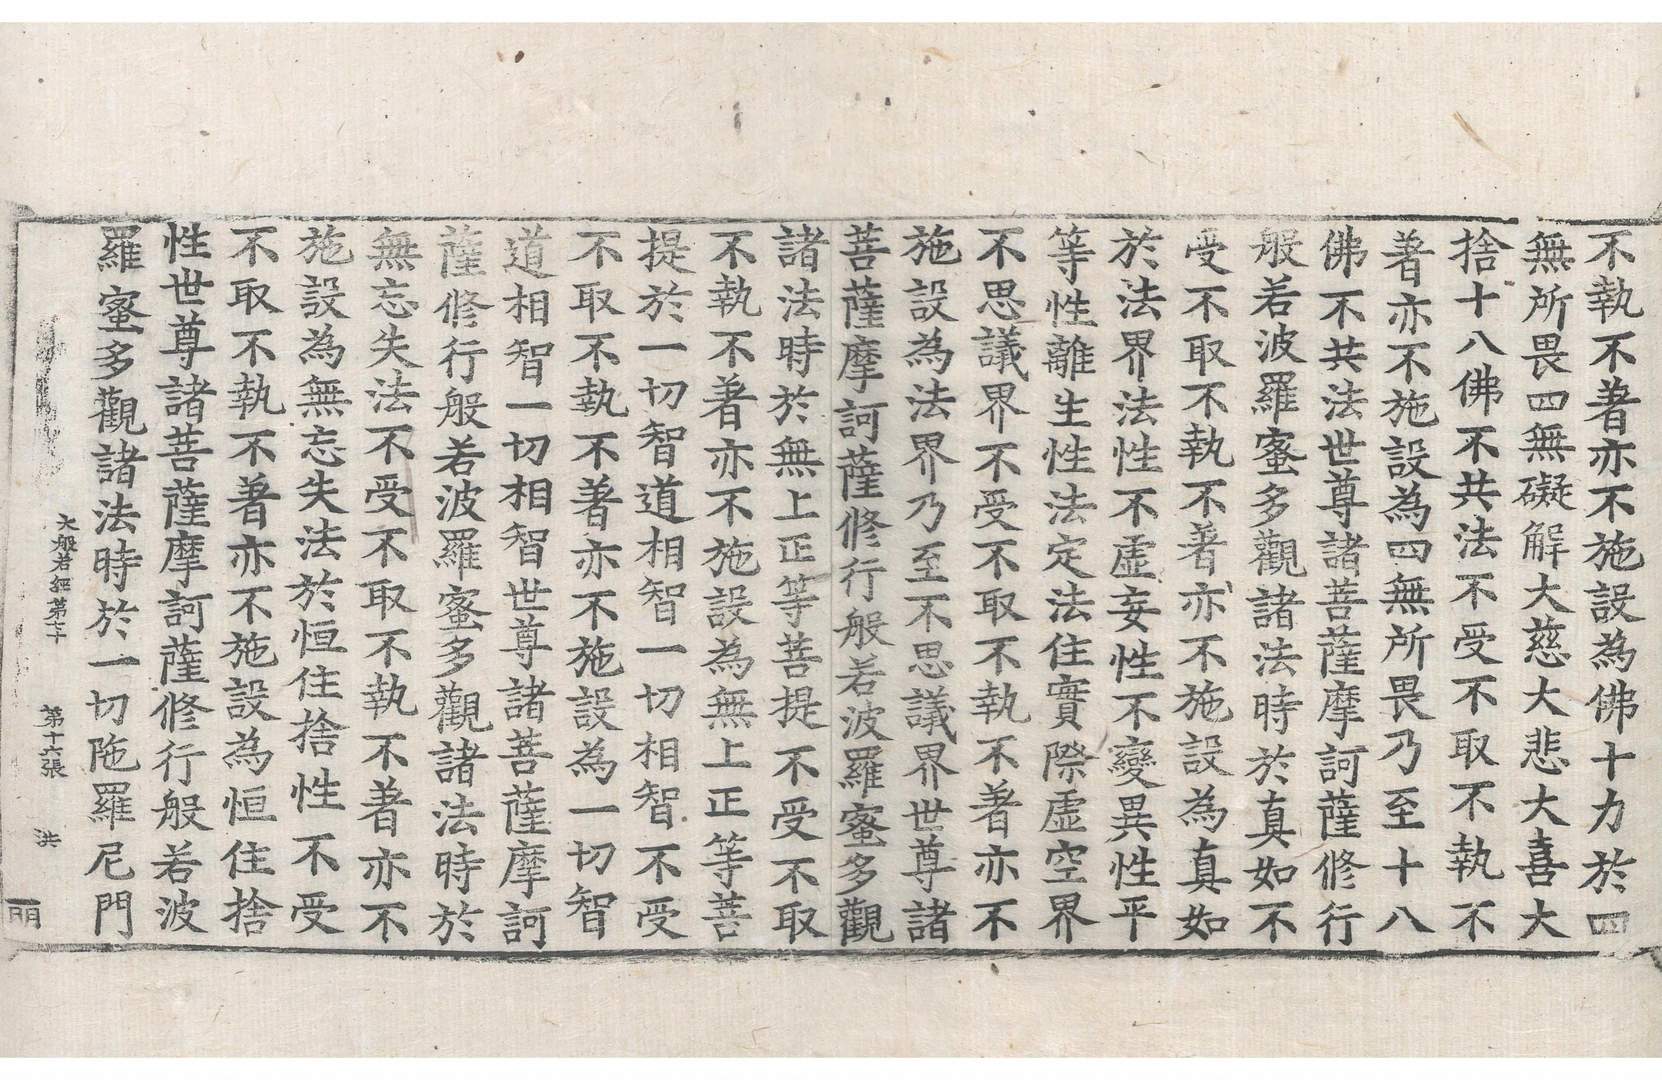 不執不著亦不施設為佛十力於四
無所畏四無礙解大慈大悲大喜大
捨十八佛不共法不受不取不執不
著亦不施設為四無所畏乃至十八
佛不共法世尊諸菩薩摩訶薩修行
般若波羅蜜多觀諸法時於真如不
受不取不執不著亦不施設為真如
於法界法性不虛妄性不變異性平
等性離生性法定法住實際虛空界
不思議界不受不取不執不著亦不
施設為法界乃至不思議界世尊諸
菩薩摩訶薩修行般若波羅蜜多觀
諸法時於無上正等菩提不受不取
不執不著亦不施設為無上正等菩
提於一切智道相智一切相智不受
不取不執不著亦不施設為一切智
道相智一切相智世尊諸菩薩摩訶
薩修行般若波羅蜜多觀諸法時於
無忘失法不受不取不執不著亦不
施設為無忘失法於恒住捨性不受
不取不執不著亦不施設為恒住捨
性世尊諸菩薩摩訶薩修行般若波
羅蜜多觀諸法時於一切陁羅尼門
大般若經第七十 第十六張 洪